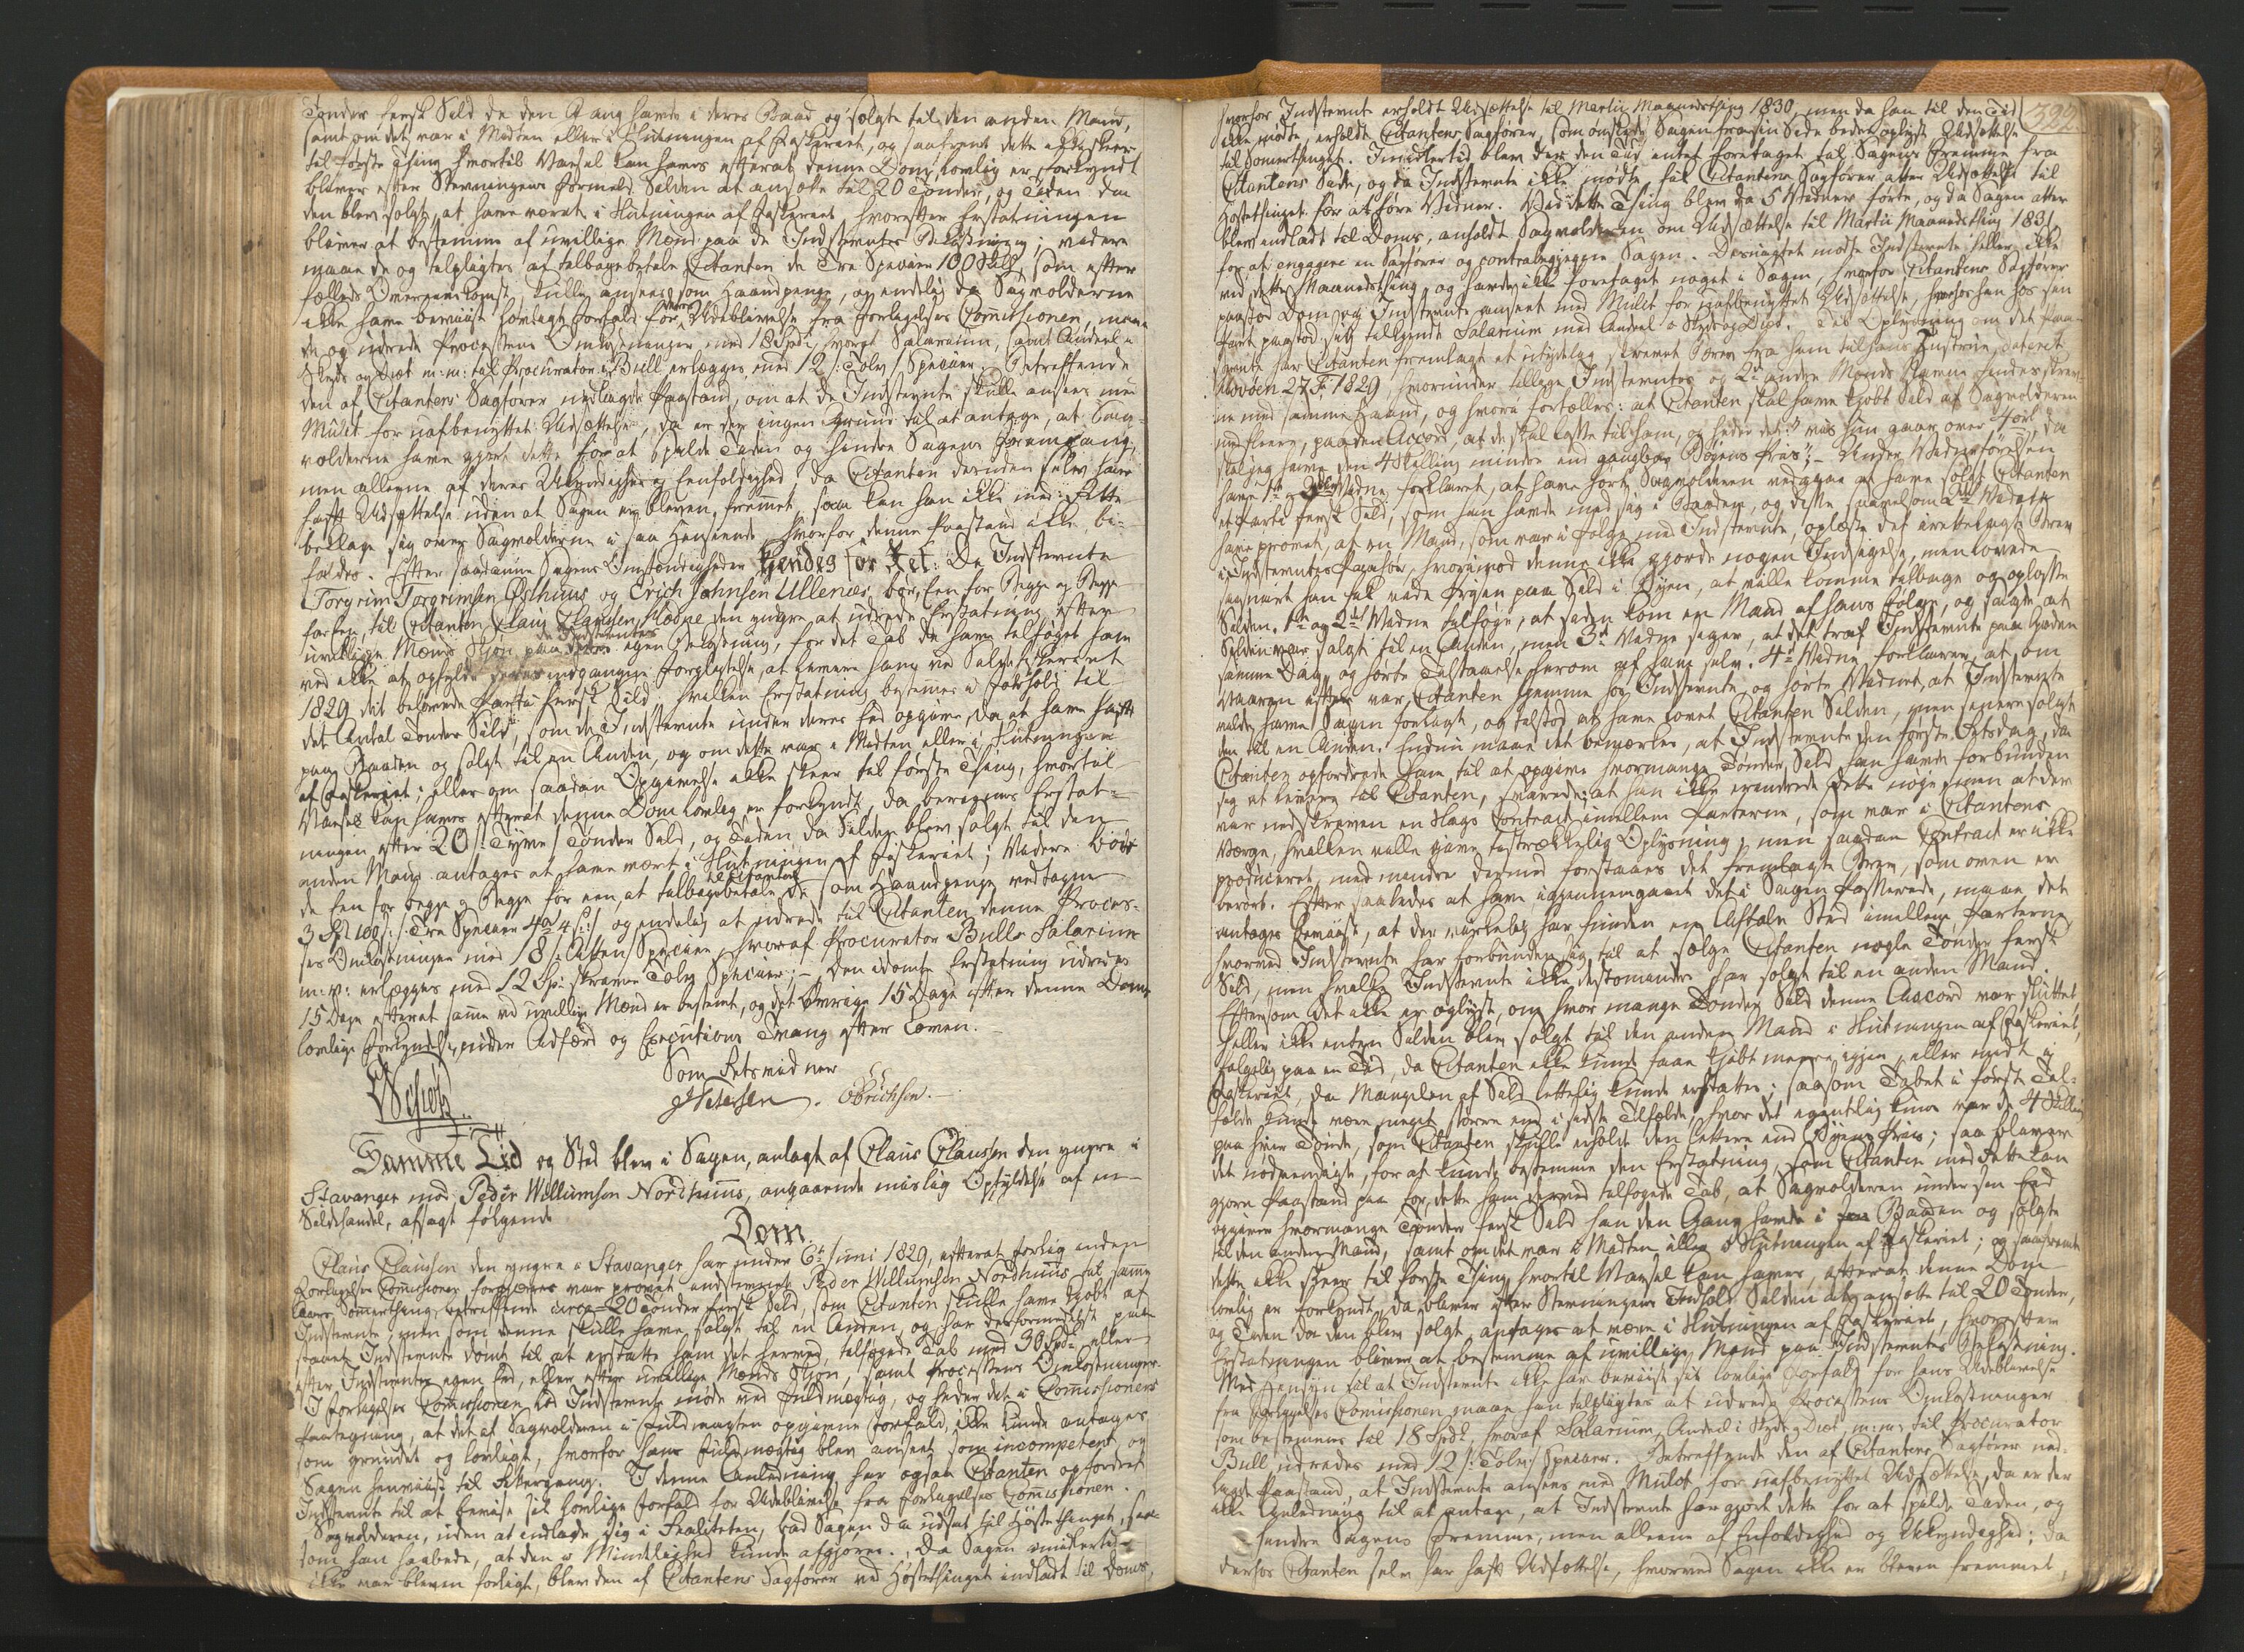 Tønder fersk Sild de den Gang havde i deres Baad og solgte til den anden Mand,
samt om det var i Midten eller i Slutningen af Fiskeriet, og saafremt dette ikke skeer
til første Thing hvortil Varsel kan haves efterat denne Dom lovlig er forkyndt
bliver efter Stevningens Formeld Silden at ansætte til 20 Tønder, og Tiden da
den blev solgt, at have været i Slutningen af Fiskeriet, hvorefter Erstatningen
bliver at bestemme af uvillige Mænd paa de Indstevntes Bekostning; videre
maae de og tilpligtes at tilbagebetale Citanten de Tre Specier 100 Skill som efter
fælleds Overeenskomst skulle ansees som Haandpenge, og endelig da Sagvolderne
ikke have beviist lovligt Forfald for deres Udeblivelse fra Forligelses Comissionen, maae
de og udrede Processens Omkostninger med 18 Spd, hvoraf Salarium, samt Andeel i
Skyds og Diæt m: m: til Procurator Bull erlægges med 12 /: Tolv /: Specier. Betreffende
den af Citantens Sagfører nedlagde Paastand, om at de Indstevnte skulle ansees med
Mulct for uafbenyttet Udsættelse, da er der ingen Grund til at antage, at Sag-
volderne have gjort dette for at spilde Tiden og hindre Sagens Fremgang,
men alleene af deres Ukyndighed og Eenfoldighed, da Citanten desuden selv har
havt Udsættelse uden at Sagen er bleven fremmet, saa kan han ikke med Rette
beklage sig over Sagvolderne i saa Henseende, hvorfor denne Paastand ikke bi-
faldes. Efter saadanne Sagens Omstændigheder kjendes for Ret: De Indstevnte
Torgrim Torgrimsen Østhuus og Erich Johnsen Ullenæs bør, Een for Begge og Begge
for een, til Citanten Claus Claussen Høvpe den yngre at udrede Erstatning efter
uvillige Mænds Skjøn paa de Indstevntes egen Bekostning, for det Tab de have tilføiet ham
ved ikke at opfylde deres indgangne Forpligtelse, at levere ham ved Sildefiskeriet
1829 det belovede Parti fersk Sild, hvilken Erstatning bestemmes i Forhold til
det Antal Tønder Sild, som de Indstevnte under deres Eed opgive da at have havt
paa Baaden og solgt til en Anden, og om dette var i Midten eller i Slutningen
af Fiskeriet; eller om saadan Opgivelse ikke skeer til første Thing, hvortil
Varsel kan haves efterat denne Dom lovlig er forkyndt, da beregnes Erstat-
ningen efter 20 /: Tyve /: Tønder Sild, og Tiden da Silden blev solgt til den
anden Mand antages at have vært i Slutningen af Fiskeriet; Videre bør
de Een for begge og Begge for een, at tilbagebetale til Citanten de som Haandpenge vedtagne
3 Spd 100 ſ /: Tre Specier 4 ort 4 ſ :/ og endelig at udrede til Citanten denne Proces-
ses Omkostninger med 18 /: Atten Specier, hvoraf Procurator Bulls Salarium
m: v: erlægges med 12 Sp: skriver Tolv Specier; – Den idømte Erstatning udredes
15 Dage efterat samme ved uvillige Mænd er bestemt, og det Øvrige 15 Dage efter denne Doms
lovlige Forkyndelse, under Adfærd og Executions Tvang efter Loven. –
Som Retsvidner
Schiøtz. J Petersen. OErichsen. –
Samme Tid og Sted blev i Sagen, anlagt af Claus Claussen den yngre i
Stavanger mod Peder Willumsen Nordhuus, angaaende mislig Opfyldelse af en
Sildehandel, afsagt følgende
Dom.
Claus Claussen den yngre i Stavanger har under 6te Juni 1829, efterat Forlig anden
Forligelses Comissionen forgjæves var prøvet indstevnet Peder Willumsen Nordhuus til samme
Aars Sommerthing, betreffende circa 20 Tønder fersk Sild, som Citanten skulle have kjøbt af
Indstevnte, men som denne skulle have solgt til en Anden, og har desformedelst paa-
staaet Indstevnte dømt til at erstatte ham det herved tilføiede Tab med 30 Spd eller
efter Indstevntes egen Eed, eller efter uvillige Mænds Skjøn, samt Processens Omkostninger.
I Forligelses Comissionen lod Indstevnte møde ved Fuldmægtig, og heder det i Comissionens
Paategning, at det af Sagvolderen i Fuldmagten opgivne Forfald, ikke kunde antages
som grundet og lovligt, hvorfor hans Fuldmægtig blev anseet som incompetent og
Sagen henviist til Rettergang. I denne Anledning har ogsaa Citanten opfordret
Indstevnte til at bevise sit lovlige Forfald for Udeblivelse fra Forligelses Comissionen.
Sagvolderen, uden at indlade sig i Realiteten, bad Sagen da udsat til Høstethinget, saa-
som han haabede, at den i Mindelighed kunde afgjøres. Da Sagen imidlertid
ikke var bleven forligt, blev den af Citantens Sagfører ved Høstethinget indladt til Doms,
322
hvorfor Indstevnte erholdt Udsættelse til Martii Maanedsthing 1830, men da han til den Tid
ikke mødte, erholdt Citantens Sagfører, som ønskede Sagen fra sin Side bedre oplyst Udsættelse
til Somerthinget. Imidlertid blev der den Tid intet foretaget til Sagens Fremme fra
Citantens Side, og da Indstevnte ikke mødte, fik Citantens Sagfører atter Udsættelse til
Høstethinget for at føre Vidner. Ved dette Thing blev da 5 Vidner førte, og da Sagen atter
blev indladt til Doms, anholdt Sagvolderen om Udsættelse til Martii Maanedsthing 1831,
for at engagere en Sagfører og contrabegjegne Sagen. Desuagtet mødte Indstevnte heller ikke
ved dette Maanedsthing, og havde ikke foretaget noget i Sagen, hvorfor Citantens Sagfører
paastod Dom og Indstevnte anseet med Mulct for uafbenyttet Udsættelse, hvorhos han hos sin
Part paastod sig tilkjendt Salarium med Andeel i Skyds og Diæt. Til Oplysning om det Paa-
stevnte har Citanten fremlagt et utydelig skrevet Brev fra ham til hans Hustrue, dateret
27 F. 1829, hvorunder tillige Indstevntes og 2de andre Mænds Navne findes skrev-
ne med samme Haand, og hvori fortælles: at Citanten skal have kjøbt Sild af Sagvolderen
med fleere, paa den Accord, at de skal løsse til ham, og heder det: "vis hun gaar over 4 ort, da
skal jeg have den 4 Skilling mindre end gangbar Byens Priis"; – Under Vidneførselen
have 1te og 2det Vidne forklaret, at have hørt Sagvolderen vedgaae at have solgt Citanten
et Parti fersk Sild, som han havde med sig i Baaden, og disse saavelsom 3die Vidne
have prøvet, at en Mand, som var i Følge med Indstevnte, oplæste det irettelagte Brev
i Indstevntes Paahør, hvorimod denne ikke gjorde nogen Indsigelse, men lovede
saasnart han fik vide Prisen paa Sild i Byen, at ville komme tilbage og oplosse
Silden. 1te og 2det Vidne tilføie, at siden kom en Mand af hans Følge, og sagde at
Silden var solgt til en Anden, men 3de Vidne siger, at det traf Indstevnte paa Gaden
samme Dag, og hørte Tilstaaelse herom af ham selv. 4de Vidne forklarer, at om
Vaaren efter var Citanten hjemme hos Indstevnte og hørte Vidnet, at Indstevnte
vilde have Sagen forligt, og tilstod at have lovet Citanten Silden, men senere solgt
den til en Anden. Endnu maae det bemærkes, at Indstevnte den første Retsdag, da
Citanten opfordrede ham til at opgive hvormange Tønder Sild han havde forbunden
sig at levere til Citanten, svarede: at han ikke erindrede dette nøie, men at der
var nedskreven en Slags Contract imellem Parterne, som var i Citantens
Værge, hvilken ville give tilstrækkelig Oplysning; men saadan Contract er ikke
produceret, med mindre dermed forstaaes det fremlagte Brev, som oven er
berørt. Efter saaledes at have igjennemgaaet det i Sagen Passerede, maae det
antages beviist, at der virkelig har funden en Aftale Sted imellem Parterne,
hvorved Indstevnte har forbunden sig til at sælge Citanten nogle Tønder fersk
Sild, men hvilke Indstevnte ikke destomindre har solgt til en anden Mand.
Eftersom det ikke er oplyst, om hvor mange Tønder Sild denne Accord var sluttet,
heller ikke enten Silden blev solgt til den anden Mand i Slutningen af Fiskeriet,
følgelig paa en Tid, da Citanten ikke kunde faae kjøbt mere igjen, eller midt i
Fiskeriet, da Manglen af Sild lettelig kunde erstattes; saasom Tabet i første Til-
fælde kunde være meget større end i sidste Tilfælde, hvor det egentlig kun var de 4 Skilling
paa hver Tønde, som Citanten skulle erholde den lettere end Byens Priis; saa bliver
det nødvendigt, for at kunde bestemme den Erstatning, som Citanten med Rette kan
gjøre Paastand paa for dette ham derved tilføiede Tab, at Sagvolderen under sin Eed
opgiver hvormange Tønder fersk Sild han den Gang havde i Baaden og solgte
til den anden Mand, samt om det var i Midten eller i Slutningen af Fiskeriet; og saafremt
dette ikke skeer til første Thing hvortil Varsel kan haves, efterat denne Dom
lovlig er forkyndt, da bliver efter Stevningens Indhold Silden at ansætte til 20 Tønder,
og Tiden da den blev solgt, antages at være i Slutningen af Fiskeriet, hvorefter
Erstatningen bliver at bestemme af uvillige Mænd paa Indstevntes Bekostning.
Med Hensyn til at Indstevnte ikke har beviist sit lovlige Forfald for hans Udeblivelse
fra Forligelses Comissionen, maae han tilpligtes at udrede Processens Omkostninger
som bestemmes til 18 Spd, hvoraf Salarium, Andeel i Skyds og Diæt, m: m: til Procurator
Bull udredes med 12 /: Tolv: Specier. Betreffende den af Citantens Sagfører ned-
lagde Paastand, at Indstevnte ansees med Mulct for uafbenyttet Udsættelse, da er der
ikke Anledning til at antage, at Indstevnte har gjort dette for at spilde Tiden, og
hindre Sagens Fremme, men alleene af Enfoldighed og Ukyndighed; da
derhos Citanten selv har havt Udsættelse, hvorved Sagen ikke er bleven fremmet,